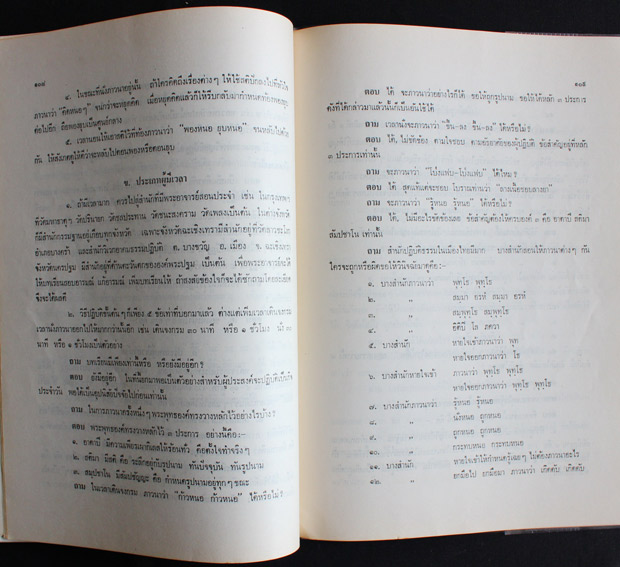 ๑๐๔
๔. ในขณะที่นั่งภาวนาอยู่นั้น ถ้าใครคิดถึงเรื่องต่างๆ ให้ใช้สติปักลงไปที่หัวใจ
ภาวนาว่า "คิดหนอๆ" จนกว่าจะหยุดคิด เมื่อหยุดคิดแล้วก็ให้รีบกลับมากำหนดท้องพองยุบ
ต่อไปอีก ถือพองยุบเป็นศูนย์กลาง
๕. เวลานอนให้เอาสติไว้ที่ท้องภาวนาว่า "พองหนอ ยุบหนอ" จนหลับไปด้วย
กัน ให้สังเกตดูให้ดีว่าจะหลับไปตอนพองหรือตอนยุบ
ข. ประเภทผู้มีเวลา
๑. ถ้ามีเวลามาก ควรไปสู่สำนักที่มีพระอาจารย์สอนประจำ เช่น ในกรุงเทพฯ
ที่วัดมหาธาตุฯ วัดปรินายก วัดชลประทาน วัดชนะสงคราม วัดเพลง เป็นต้น ในต่างจังหวัด
ก็มีสำนักกรรมฐานอยู่เกือบทุกจังหวัด เฉพาะจังหวัดฉะเชิงเทรามีสำนักอยู่ที่วัด
อำเภอบางคล้า และสำนักวิเวกอาศรมปฏิบัติ ต. บางขวัญ อ. เมือง จ. ฉะเชิงเทรา
จังหวัดนครปฐม มีสำนักอยู่ที่ด้านตะวันตกขององค์พระปฐม เป็นต้น เพื่อพระอาจารย์จะ
ได้สอบอารมณ์ แก้อารมณ์ เพิ่มบทเรียนให้ ถ้าสงสัยข้องใจก็จะได้ซักถามโดยละเอียด
จึงจะได้ผลดี
๒. วิธีปฏิบัติขั้นต้นๆ ก็เพียง ๕ ข้อเท่าที่บอกมาแล้ว ต่างแต่เพิ่มเวลาเดินจงกรม
เวลานั่งภาวนาออกไปให้มากกว่านั้นอีก เช่น เดินจงกรม ๓๐ นาที หรือ ๑ ชั่วโมง นั่ง ๓๐
นาที หรือ ๑ ชั่วโมงเป็นตัวอย่าง
ถาม บทเรียนมีเพียงเท่านี้หรือ หรือยังมีอยู่อีก ?
ตอบ ยังมีอยู่อีก ในที่นี้ยกมาพอเป็นตัวอย่างสำหรับผู้ประสงค์จะปฏิบัติเป็นกิจ
ประจำวัน พอได้เป็นอุปนิสัยปัจจัยไปก่อนเท่านั้น
ถาม ในการภาวนาครั้งหนึ่งๆ พระพุทธองค์ทรงวางหลักไว้อย่างไรบ้าง ?
ตอบ พระพุทธองค์ทรงวางหลักไว้ ๓ ประการ อย่างนี้คือ:-
๑. อาตาปี มีความเพียรเผากิเลสให้ร้อนทั่ว คือตั้งใจทำจริงๆ
๒. สติมา มีสติ คือ ระลึกอยู่กับรูปนาม ทันปัจจุบัน ทันรูปนาม
๓. สมฺปชาโน มีสัมปชัญญะ คือ กำหนดรูปนามอยู่ทุกๆ ขณะ
ถาม ในเวลาเดินจงกรม ภาวนาว่า "ก้าวหนอ ก้าวหนอ" ได้หรือไม่ ?
๑๐๕
ตอบ ได้ จะภาวนาว่าอย่างไรก็ได้ ขอให้ถูกรูปนาม ขอให้ได้หลัก ๓ ประการ
ดังที่ได้กล่าวมาแล้วนั้นก็เป็นอันใช้ได้
ถาม เวลานั่งจะภาวนาว่า "ขึ้น-ลง ขึ้น-ลง" ได้หรือไม่ ?
ตอบ ได้, ไม่ขัดข้อง ตามใจชอบ ตามอัธยาศัยของผู้ปฏิบัติ ข้อสำคัญอยู่ที่หลัก
๓ ประการเท่านั้น
ถาม จะภาวนาว่า "โป่งแฟบ-โป่งแฟบ" ได้ไหม ?
ตอบ ได้ สุดแท้แต่จะชอบ โบราณท่านว่า "ลางเนื้อชอบลางยา"
ถาม จะภาวนาว่า "รู้หนอ รู้หนอ" ได้หรือไม่ ?
ตอบ ได้, ไม่มีอะไรขัดข้องเลย ข้อสำคัญต้องให้ครบองค์ ๓ คือ อาตาปี สติมา
สัมปชาโน เท่านั้น
ถาม สำนักปฏิบัติธรรมในเมืองไทยมีมาก บางสำนักสอนให้ภาวนาต่างๆ กัน
ใครจะถูกหรือผิดขอให้วินิจฉัยมาดูคือ:-
๑. บางสำนักภาวนาว่า พุทฺโธ พุทฺโธ
๒. ,, สมฺมา อรหํ สมฺมา อรหํ
๓. ,, สมฺพุทฺโธ สมฺพุทฺโธ
๔. ,, อิติปิ โส ภควา
๕. บางสำนัก หายใจเข้าภาวนาว่า พุท
หายใจออกภาวนาว่า โธ
๖. บางสำนักหายใจเข้า ภาวนาว่า พุทฺโธ พุทฺโธ
หายใจออกภาวนาว่า พุทฺโธ พุทฺโธ
๗. บางสำนักภาวนาว่า รู้หนอ รู้หนอ
๘. ,, นั่งหนอ ถูกหนอ
๙. ,, ถูกหนอ ถูกหนอ
๑๐. ,, กระทบหนอ กระทบหนอ
๑๑. บางสำนัก หายใจเข้าให้กำหนดรู้เฉยๆ ไม่ต้องภาวนาอะไร
๑๒. ,, ยกมือไป ยกมือมา ภาวนาว่า เกิดดับ เกิดดับ